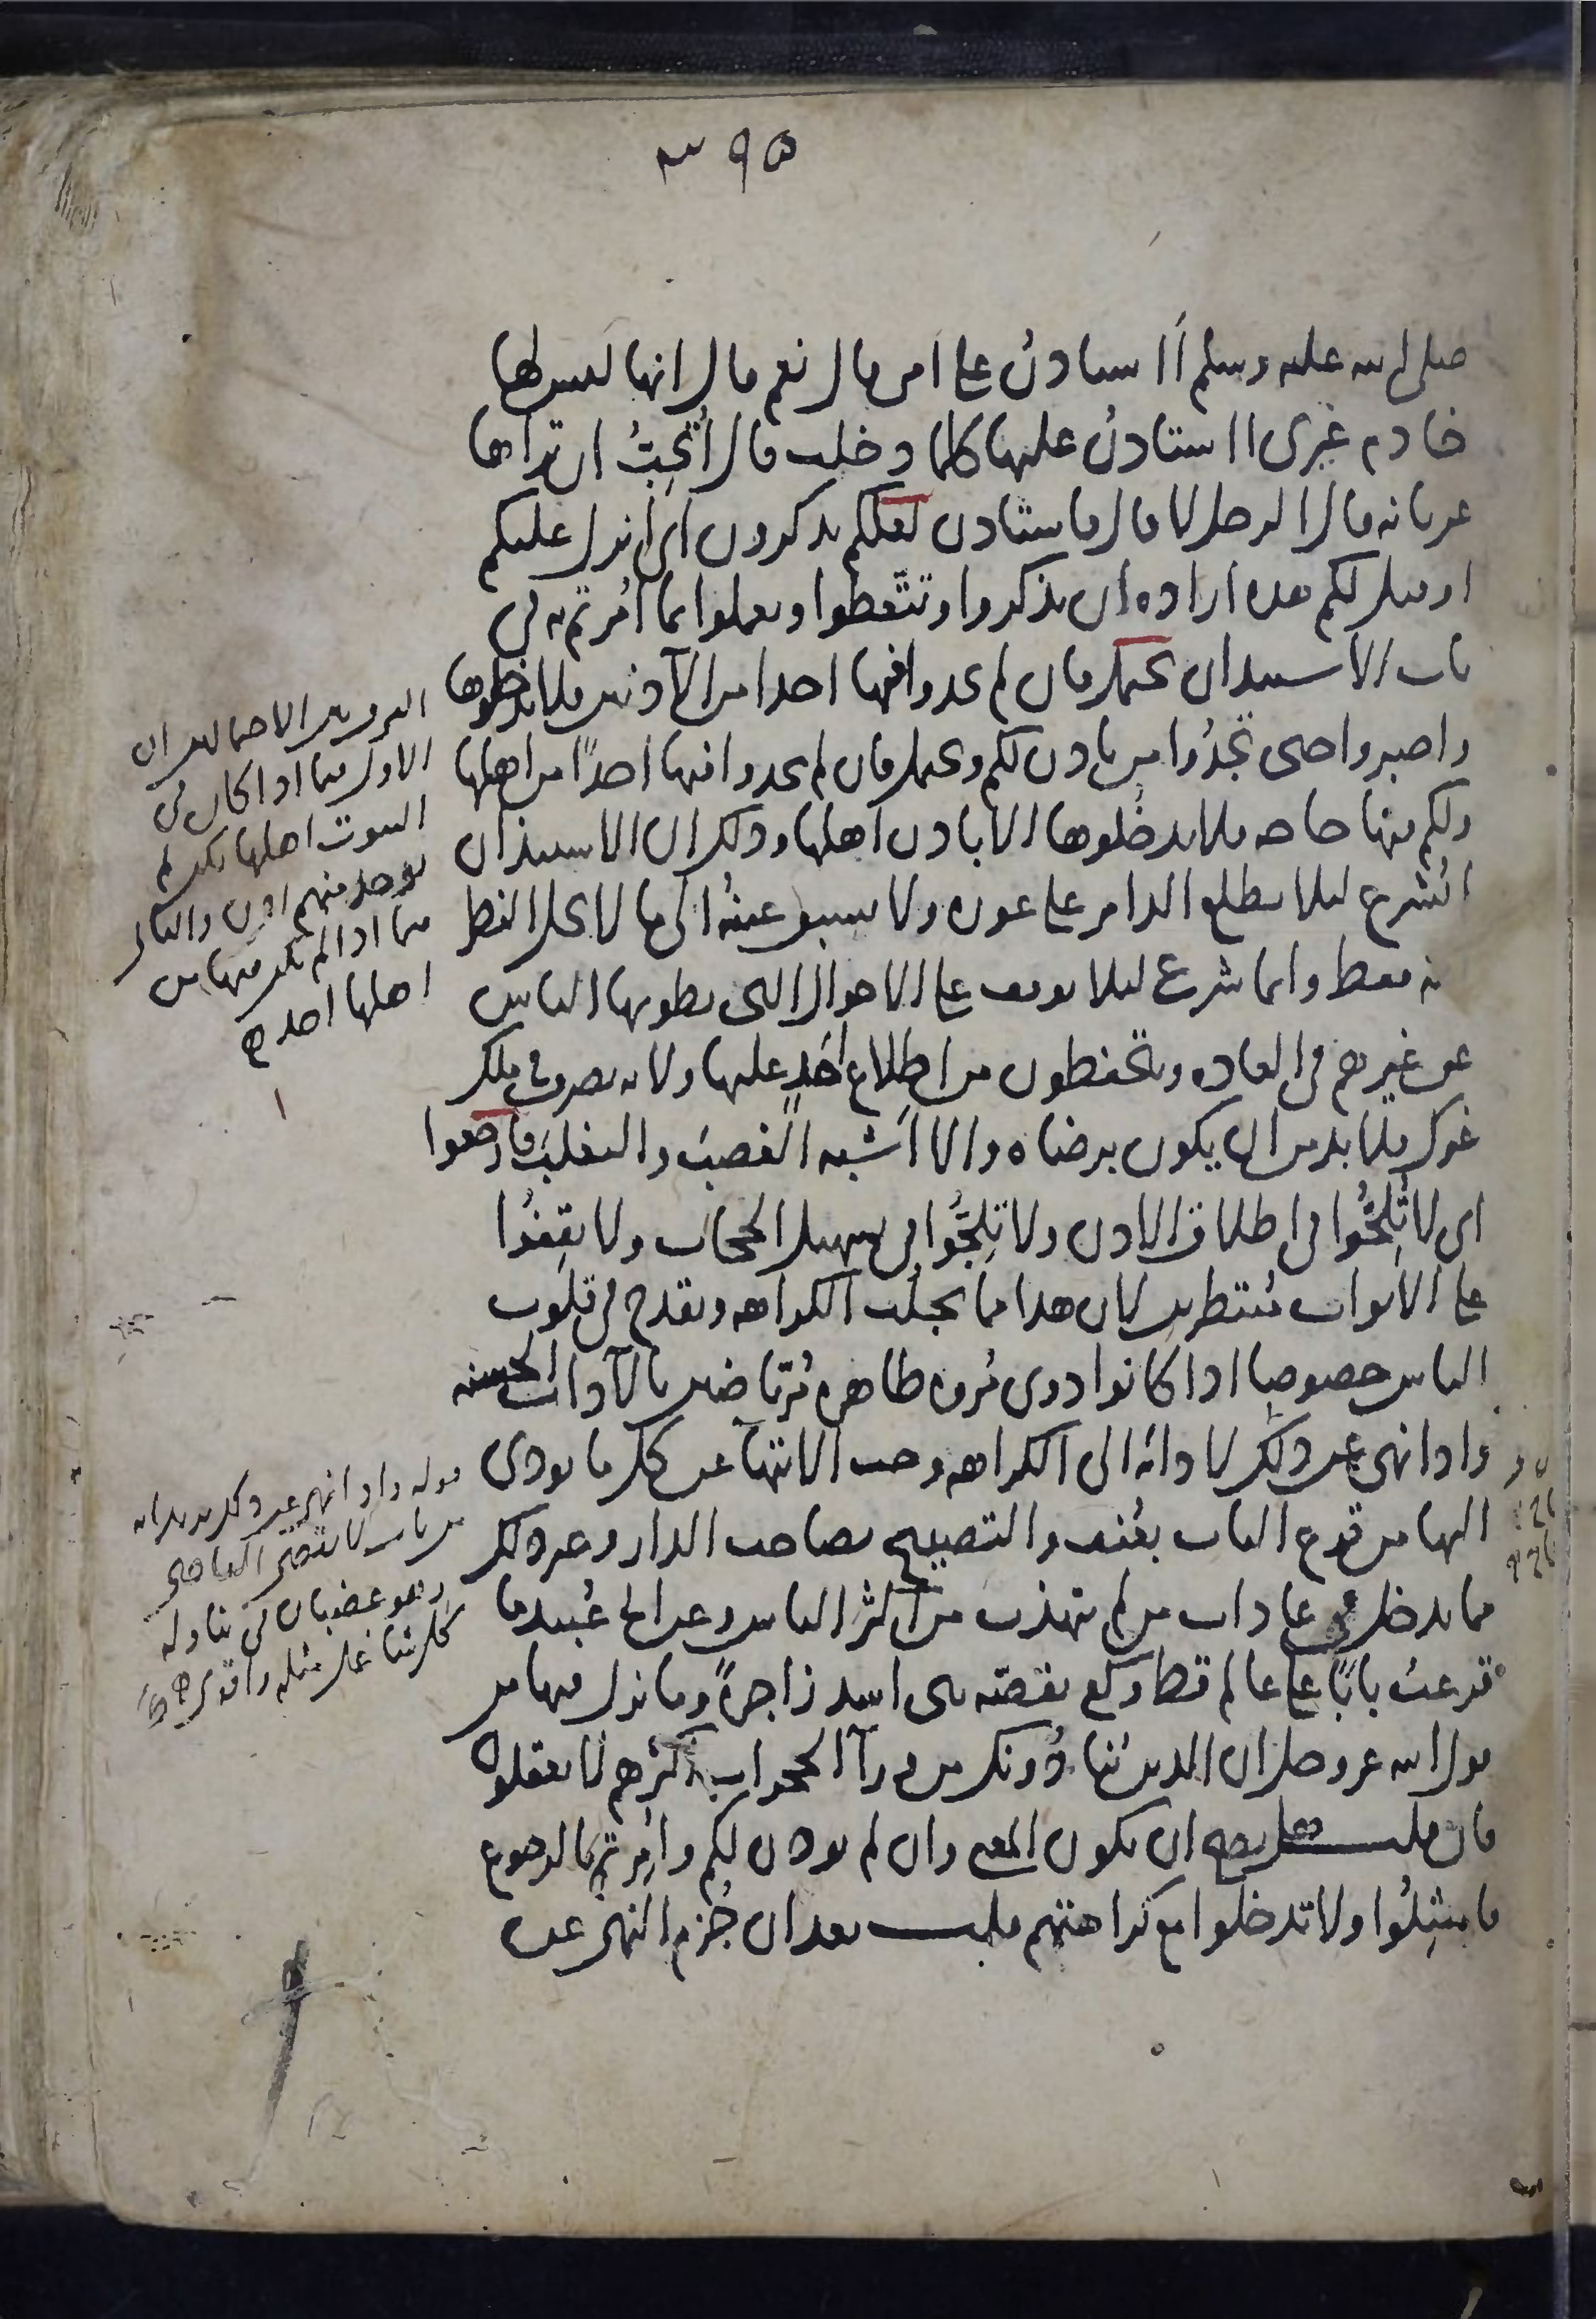 ٣٩٥
صلى الله عليه وسلم أأستاذن على امى قال نعم قال انها ليس لها
خادم غيرى أأستاذن عليها كلما دخلت قال أتحبُّ ان تراها
عريانه قال الرجل لا قال فاستاذن لعلكم تذكرون اى انزل عليكم
او قيل لكم هذا ارادة ان تذكروا وتتعظوا وتعملوا بما اُمرتم به فى
باب الاستيذان يحتمل فان لم تجدوا فيها احدا من الآذنين فلا تدخلوها
واصبروا حتى تَجدُوا من ياذن لكم ويحتمل فان لم تجدوا فيها احدًا من اهلها
ولكم فيها حاجه فلا تدخُلوها الا باذن اهلها وذلك ان الاستيذان
لم يُشرع لئلا يطلع الدامر على عوره ولا تسبق عينُه الى ما لا يحل النظر
اليه فقط وانما شرع لئلا يوقف على الاحوال التى يطويها الناس
عن غيرهم فى العاده ويتحفظون من اطلاع احدٍ عليها ولانه تصرف فى ملك
غيرك فلا بد من ان يكون برضاه والا اَشبه الغصبَ والتغلبَ فارجعوا
اى لا تُلِحُّوا فى اطلاق الاذن ولا تَلِجُّوا فى تسهيل الحجاب ولا تقِفُوا
على الابواب مُنتظرين لان هذا مما يجلب الكراهه ويقدح فى قلوب
الناس خصوصا اذا كانوا ذوى مُروه طاهره مُرتاضين بالآداب الحسنه
واذا نهى عن ذلك لادائه الى الكراهه وجب الانتهآ عن كل ما يودى
اليها من قرع الباب بعُنف والتصييح بصاحب الدار وغير ذلك
مما يدخل فى عادات من لم يتهذب من اكثر الناس وعن ابى عُبيد ما
قرعتُ بابًا على عالم قط وكفى بقصّه بنى اسد زاجرةً وما نزل فيها من
قول الله عز وجل ان الذين ينادُونك من ورآ الحجرات اكثرهم لا يعقلون
فان قلت هل يصح ان يكون المعنى وان لم يوذن لكم واُمِرتم بالرجوع
فامتثِلُوا ولا تدخلوا مع كراهتهم قلت بعد ان جُزم النهى عن
الفرق بين الاحتمالين ان
الاول فيما اذا كان فى
البيوت اهلها لكن لم
يوجد منهم اذن والثانى
فيما اذا لم يكن فيها من
اهلها احد
قوله واذا نهى عن ذلك يريد انه
من باب لا يقضى القاضى
وهو غضبان فى تناوله